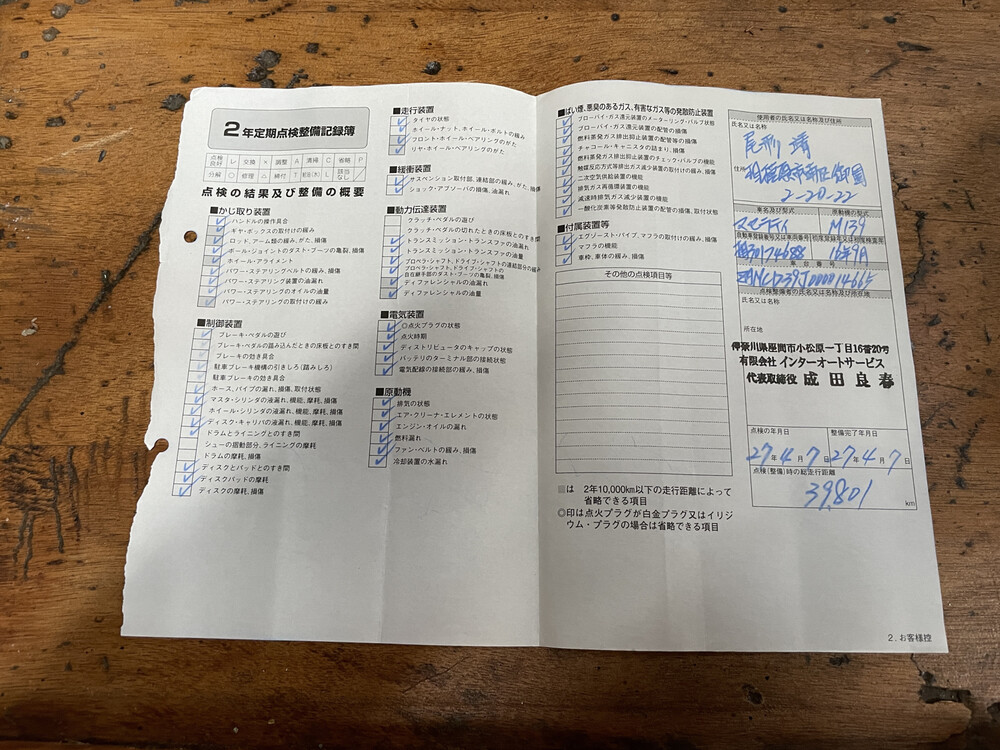 2年定期点検整備記録簿
点検良好 レ 交換 × 調整 A 清掃 C 省略 P
分解 ○ 修理 △ 締付 T 給油(水) L 該当なし ／
点検の結果及び整備の概要
■かじ取り装置
ハンドルの操作具合
ギヤ・ボックスの取付けの緩み
ロッド、アーム類の緩み、がた、損傷
ボール・ジョイントのダスト・ブーツの亀裂、損傷
ホイール・アライメント
パワー・ステアリングベルトの緩み、損傷
パワー・ステアリング装置の油漏れ
パワー・ステアリングのオイルの油量
パワー・ステアリングの取付けの緩み
■制御装置
ブレーキ・ペダルの遊び
ブレーキ・ペダルの踏み込んだときの床板とのすき間
ブレーキの効き具合
駐車ブレーキ機構の引きしろ(踏みしろ)
駐車ブレーキの効き具合
ホース、パイプの漏れ、損傷、取付状態
マスタ・シリンダの液漏れ、機能、摩耗、損傷
ホイール・シリンダの液漏れ、機能、摩耗、損傷
ディスク・キャリパの液漏れ、機能、摩耗、損傷
ドラムとライニングとのすき間
シューの摺動部分、ライニングの摩耗
ドラムの摩耗、損傷
ディスクとパッドとのすき間
ディスクパッドの摩耗
ディスクの摩耗、損傷
■走行装置
タイヤの状態
ホイール・ナット、ホイール・ボルトの緩み
フロント・ホイール・ベアリングのがた
リヤ・ホイール・ベアリングのがた
■緩衝装置
サスペンション取付部、連結部の緩み、がた、損傷
ショック・アブソーバの損傷、油漏れ
■動力伝達装置
クラッチ・ペダルの遊び
クラッチ・ペダルの切れたときの床板とのすき間
トランスミッション・トランスファの油漏れ
トランスミッション・トランスファの油量
プロペラ・シャフト、ドライブ・シャフトの連結部分の緩み
プロペラ・シャフト、ドライブ・シャフトの
自在継手部のダスト・ブーツの亀裂、損傷
ディファレンシャルの油漏れ
ディファレンシャルの油量
■電気装置
◎点火プラグの状態
点火時期
ディストリビュータのキャップの状態
バッテリのターミナル部の接続状態
電気配線の接続部の緩み、損傷
■原動機
排気の状態
エア・クリーナ・エレメントの状態
エンジン・オイルの漏れ
燃料漏れ
ファン・ベルトの緩み、損傷
冷却装置の水漏れ
■ばい煙、悪臭のあるガス、有害なガス等の発散防止装置
ブローバイ・ガス還元装置のメーターリング・バルブ状態
ブローバイ・ガス還元装置の配管の損傷
燃料蒸発ガス排出抑止装置の配管等の損傷
チャコール・キャニスタの詰まり、損傷
燃料蒸発ガス排出抑止装置のチェック・バルブの機能
触媒反応方式等排出ガス減少装置の取付けの緩み、損傷
二次空気供給装置の機能
排気ガス再循環装置の機能
減速時排気ガス減少装置の機能
一酸化炭素等発散防止装置の配管の損傷、取付状態
■付属装置等
エグゾースト・パイプ、マフラの取付けの緩み、損傷
マフラの機能
車枠、車体の緩み、損傷
その他の点検項目等
■は 2年10,000km以下の走行距離によって
省略できる項目
◎印は点火プラグが白金プラグ又はイリジ
ウム・プラグの場合は省略できる項目
使用者の氏名又は名称及び住所
氏名又は名称
住所
相模原市南区御園
2-20-22
車名及び型式 原動機の型式
マセラティ M139
自動車登録番号又は車両番号 初度登録年又は初度検査年
16年9月
車台番号
点検整備者の氏名又は名称及び所在地
氏名又は名称
所在地
神奈川県座間市小松原一丁目16番20号
有限会社 インターオートサービス
代表取締役 成田良春
点検の年月日 整備完了年月日
27年4月7日 27年4月7日
点検(整備)時の総走行距離
39,801 km
2.お客様控